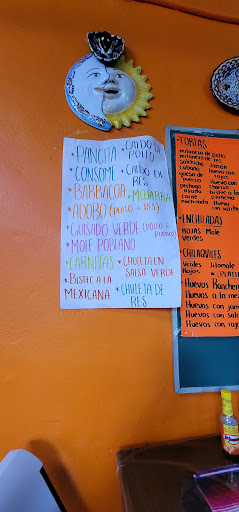 • PANCITA
• CONSOME
• BARBACOA
• ADOBO (POLLO o RES)
• GUISADO VERDE (POLLO o PUERCO)
• MOLE POBLANO
• CARNITAS
• BISTEC A LA MEXICANA
• CALDO DE POLLO
• CALDO DE RES
• MOJARRA
• CHULETA EN SALSA VERDE
• CHULETA DE RES
• TORTAS
milanesa de pollo
milanesa de res
salchicha
cubana
queso de puerco
pechuga
asada
carne enchilada
Jamón
Huevo
Huevo con chorizo
bistec a la plancha
Huevo con
• ENCHILADAS
ROJAS Mole
Verdes
• CHILAQUILES
Verdes
Rojos
Huevos Ranchero
Huevos a la me
Huevos con jam
Huevos con salc
Huevos con